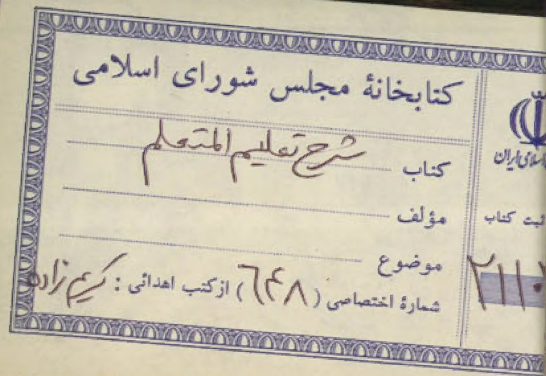 کتابخانهٔ مجلس شورای اسلامی
کتاب شرح تعلیم المتعلم
مؤلف
موضوع
شمارهٔ اختصاصی (٦٤٨) از کتب اهدائی : کریم زاده
اسلامی ایران
ثبت کتاب